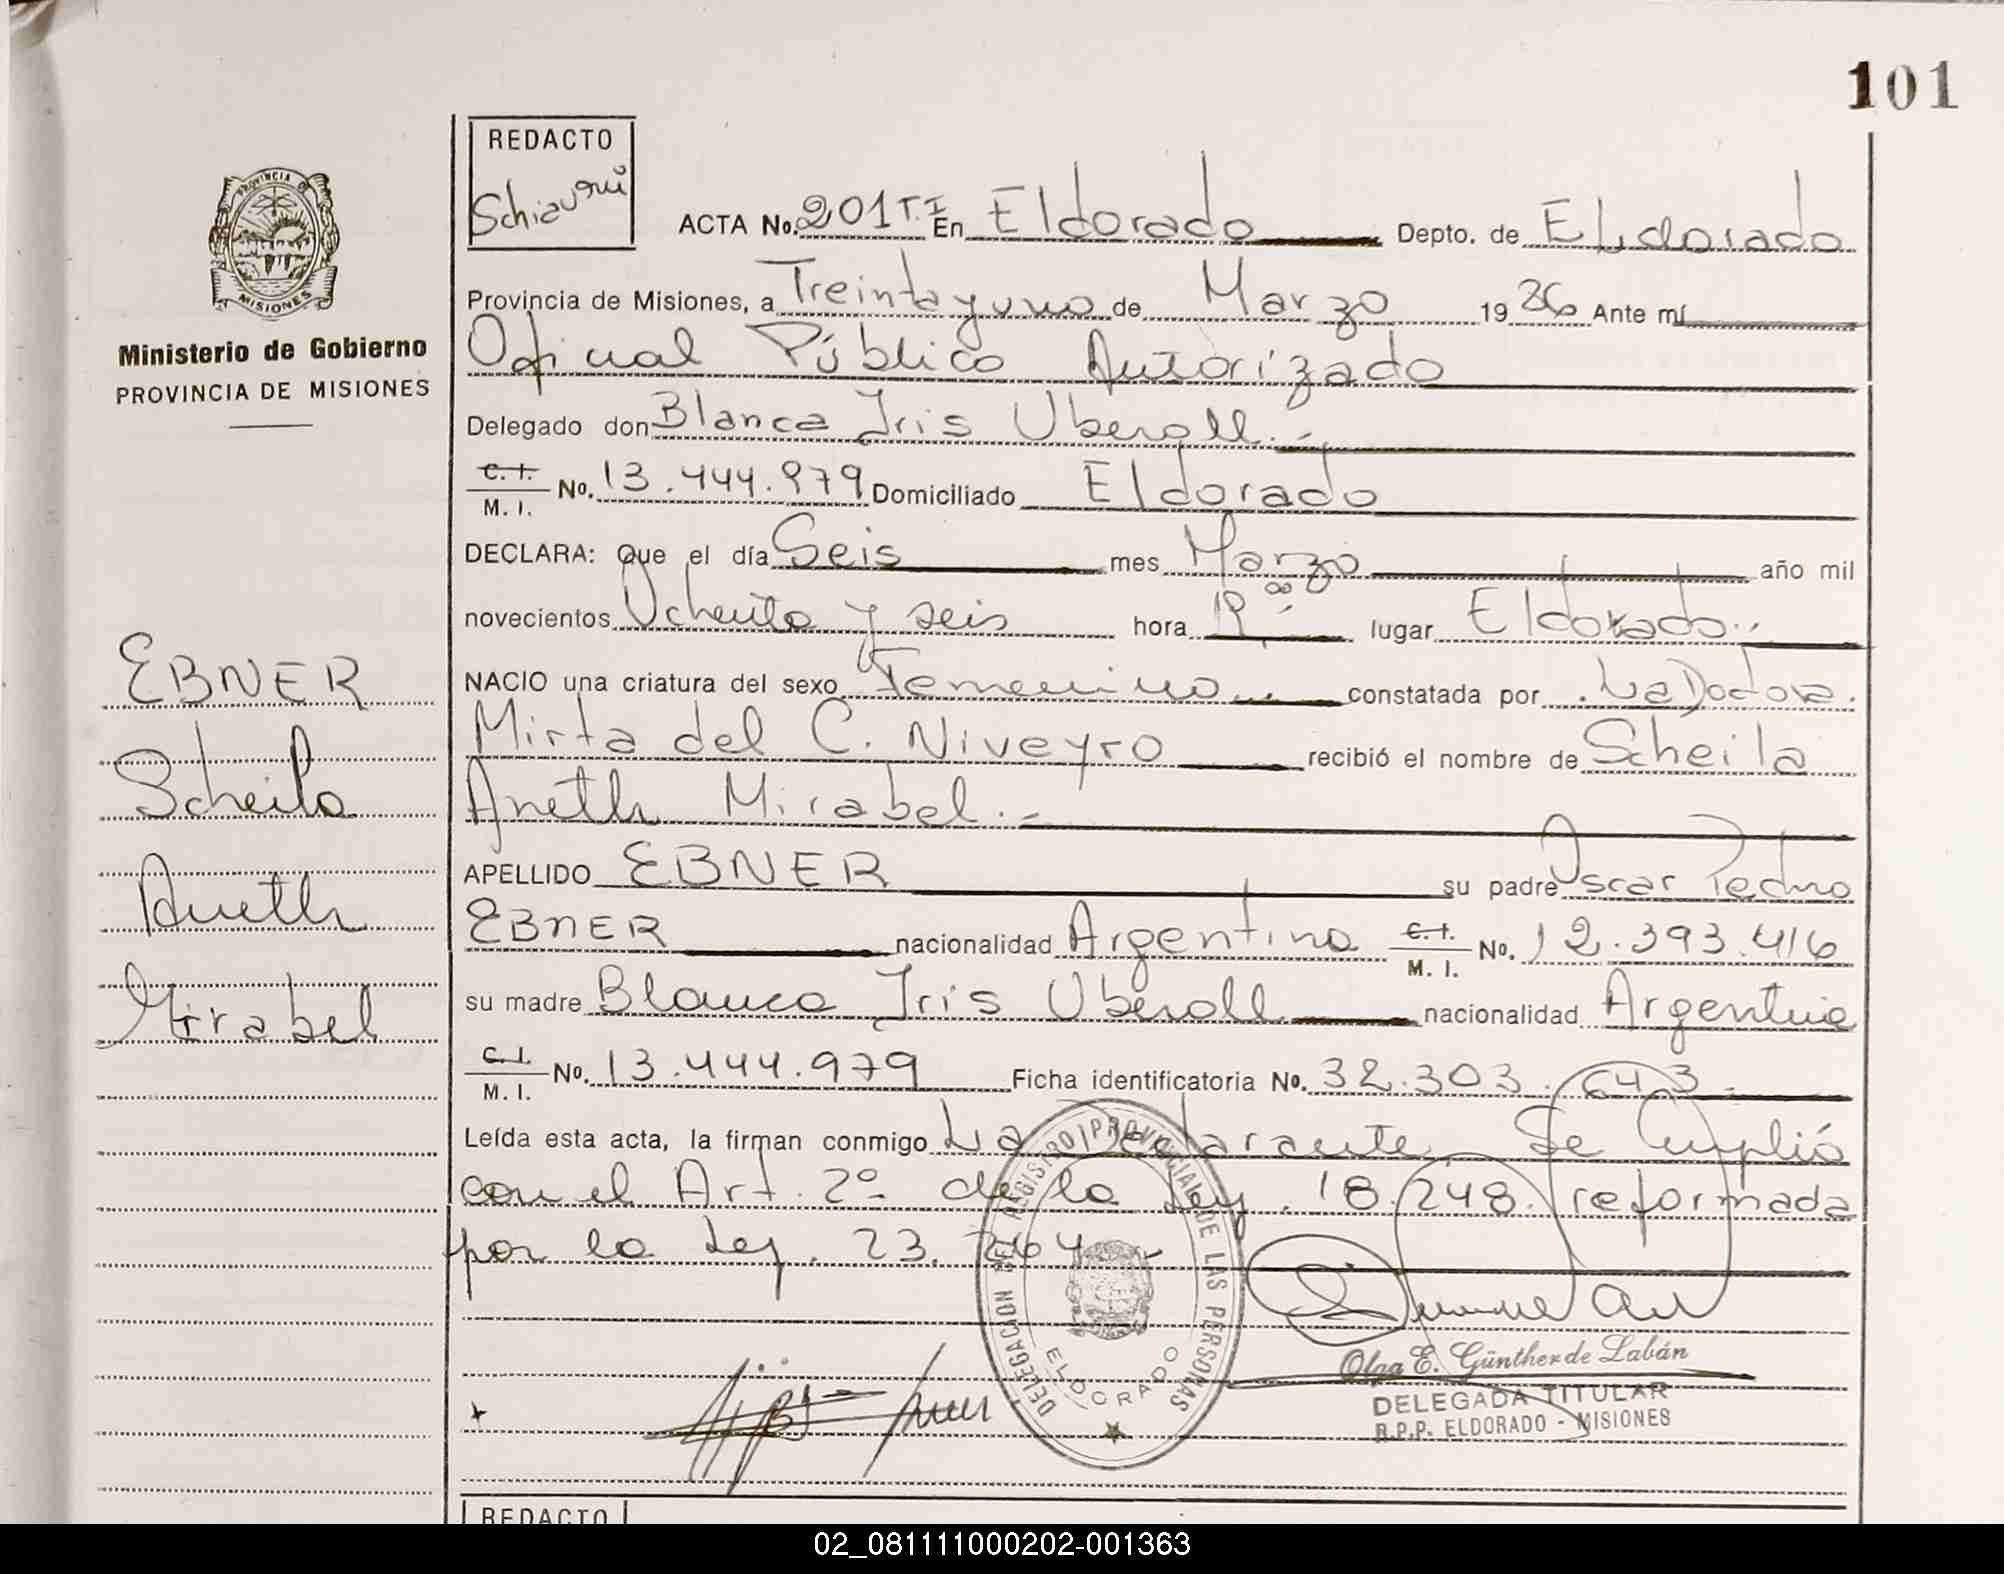 101
REDACTO
Schiavoni
PROVINCIA DE
MISIONES
Ministerio de Gobierno
PROVINCIA DE MISIONES
ACTA No. 201 T. I En Eldorado Depto. de Eldorado
Provincia de Misiones, a Treinta y uno de Marzo 1986 Ante mí
Oficial Público Autorizado
Delegado don Blanca Iris Uberall.-
C. I. / M. I. No. 13.444.979 Domiciliado Eldorado
DECLARA: Que el día Seis mes Marzo año mil
novecientos Ochenta y seis hora 19,00- lugar Eldorado.-
NACIO una criatura del sexo Femenino constatada por La Doctora.
Mirta del C. Niveyro recibió el nombre de Scheila
Aneth Mirabel.-
APELLIDO EBNER su padre Oscar Pedro
EBNER nacionalidad Argentina C. I. / M. I. No. 12.393.416
su madre Blanca Iris Uberall nacionalidad Argentina
C. I. / M. I. No. 13.444.979 Ficha identificatoria No. 32.303.643.-
Leída esta acta, la firman conmigo La Declarante, Se Cumplió
con el Art. 2º de la Ley. 18.248. reformada
por la Ley. 23.264.-
EBNER
Scheila
Aneth
Mirabel
DELEGACION DEL REGISTRO PROVINCIAL DE LAS PERSONAS
ELDORADO
Olga E. Günther de Labán
DELEGADA TITULAR
R.P.P. ELDORADO - MISIONES
REDACTO
02_081111000202-001363